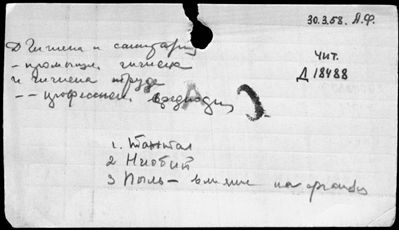 30.3.58. А.Ф.
Гигиена и санитария
чит.
Д 18488
- промышл. гигиена
и гигиена труда
-- профессион. вредности
1. Тантал
2 Ниобий
3 Пыль - влияние на организм